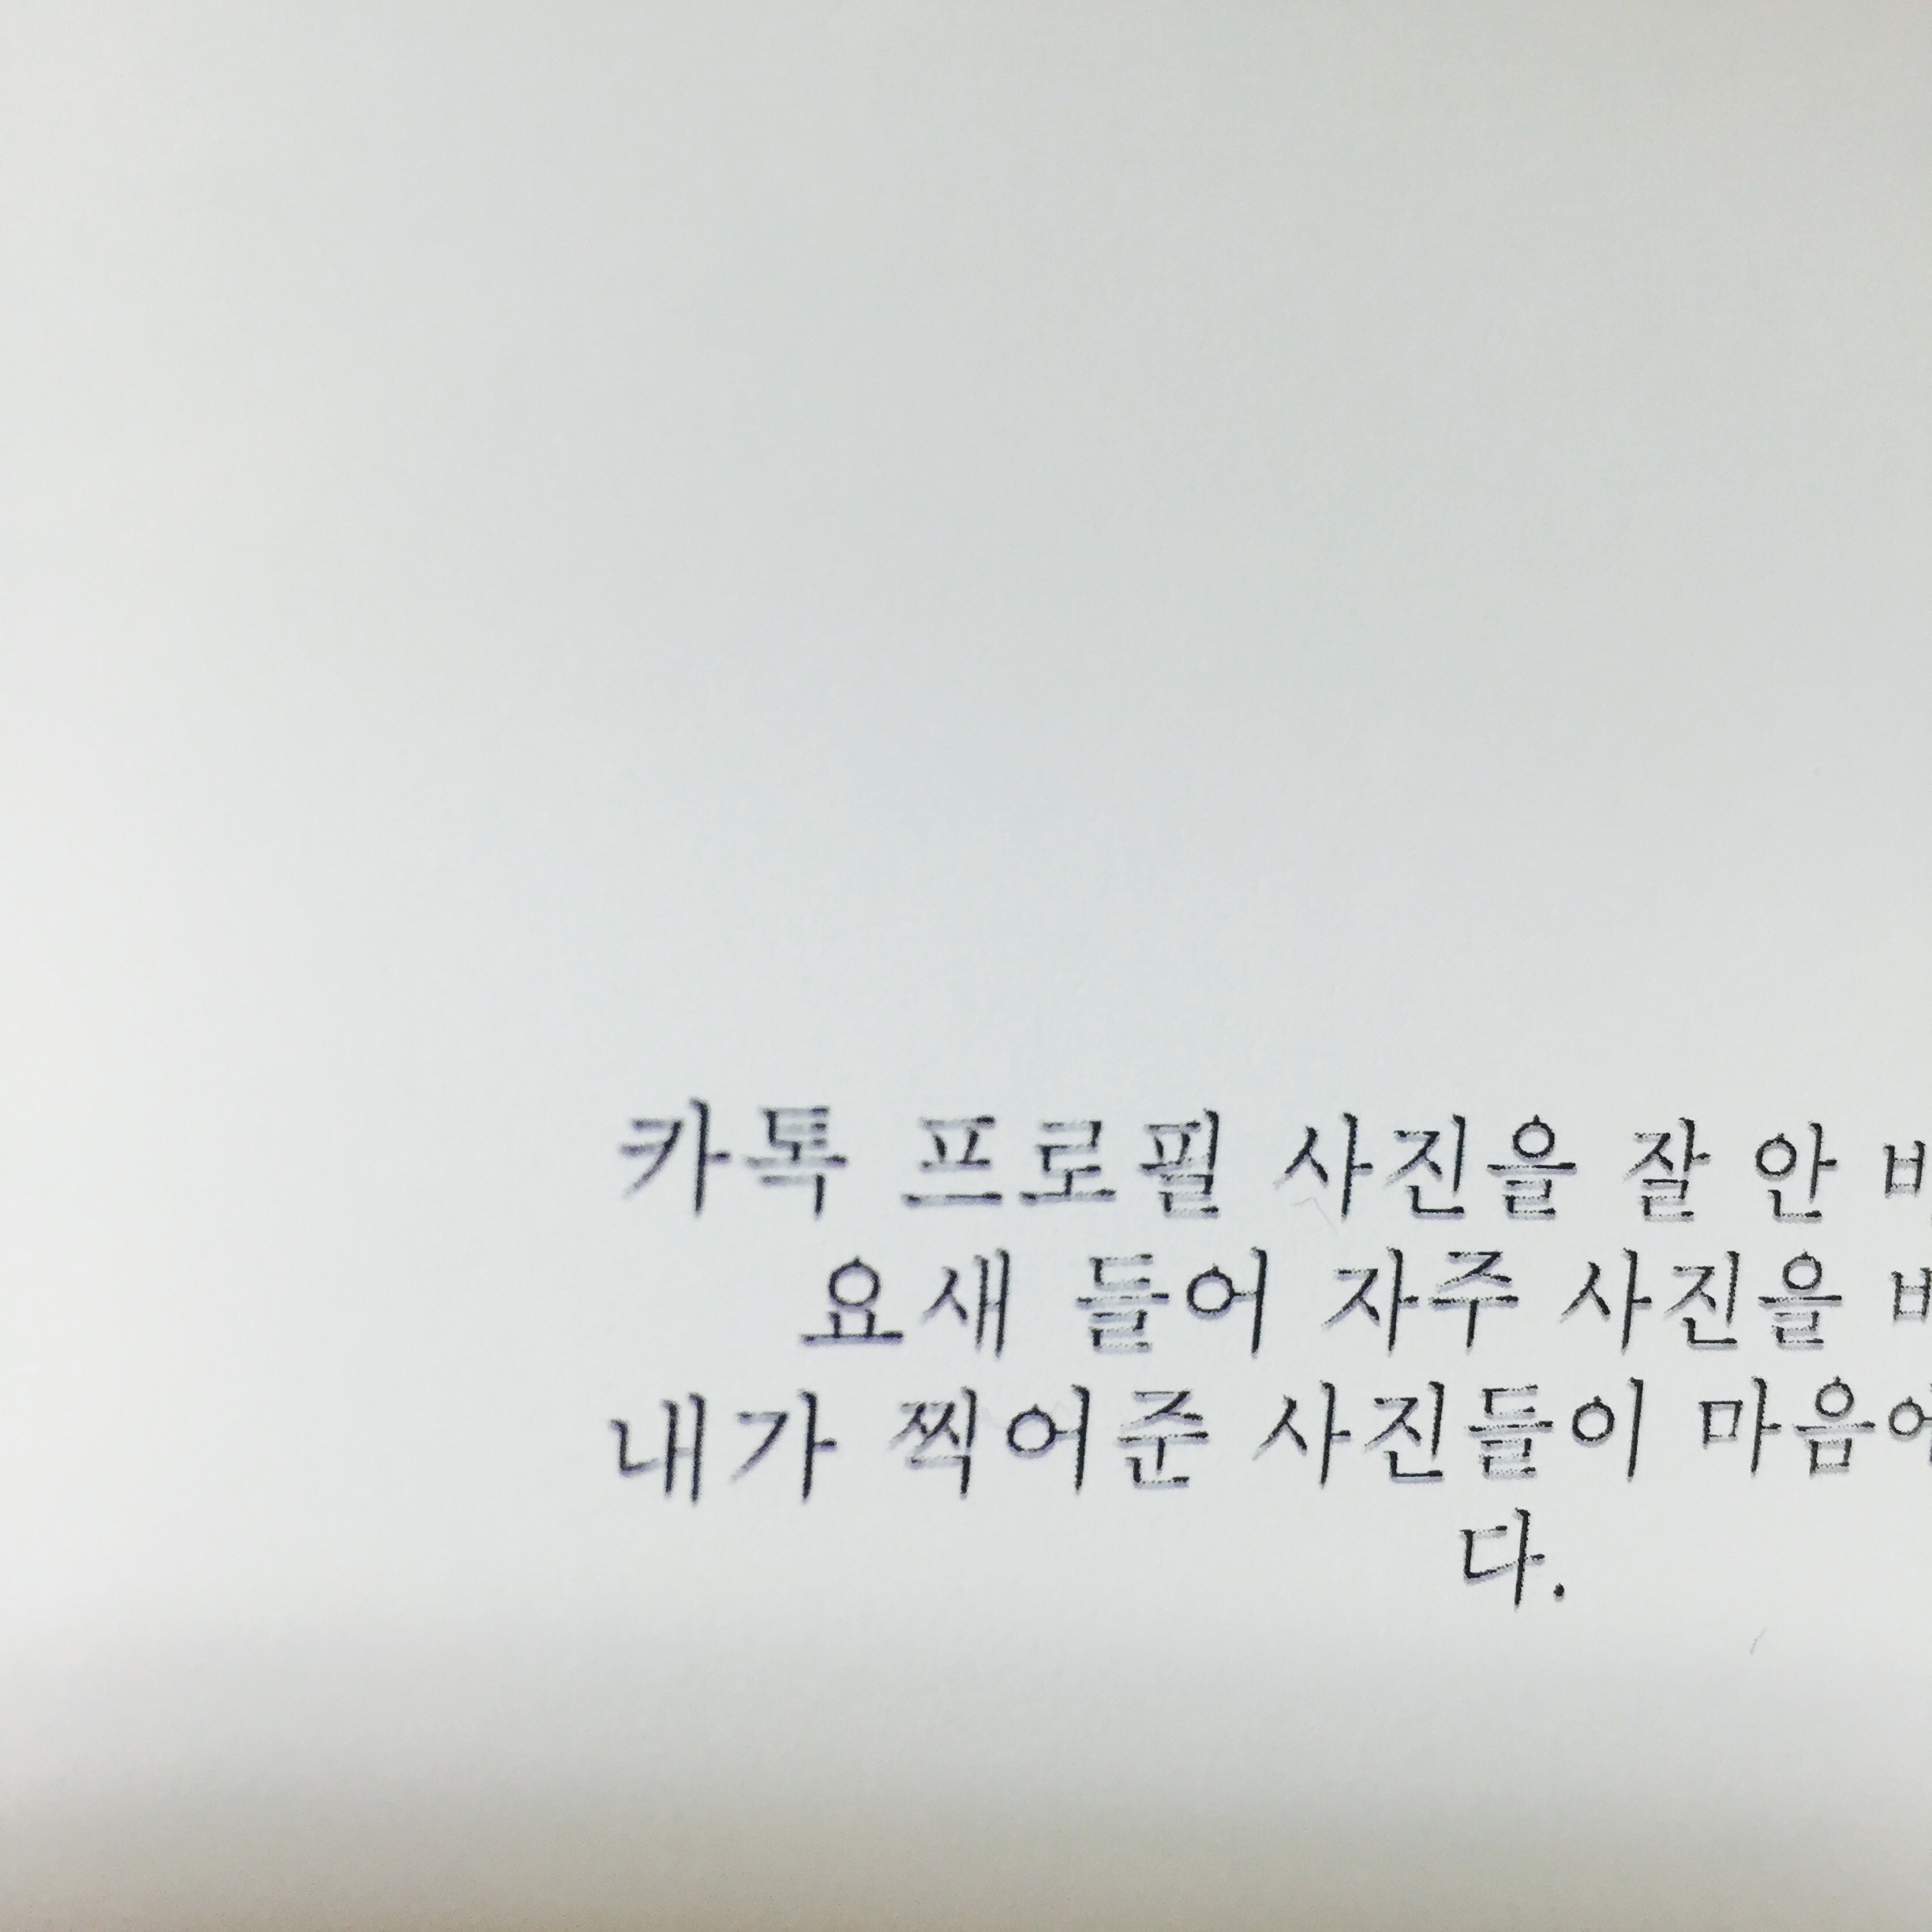 카톡 프로필 사진을 잘 안
요새 들어 자주 사진을
내가 찍어준 사진들이 마음에
다.